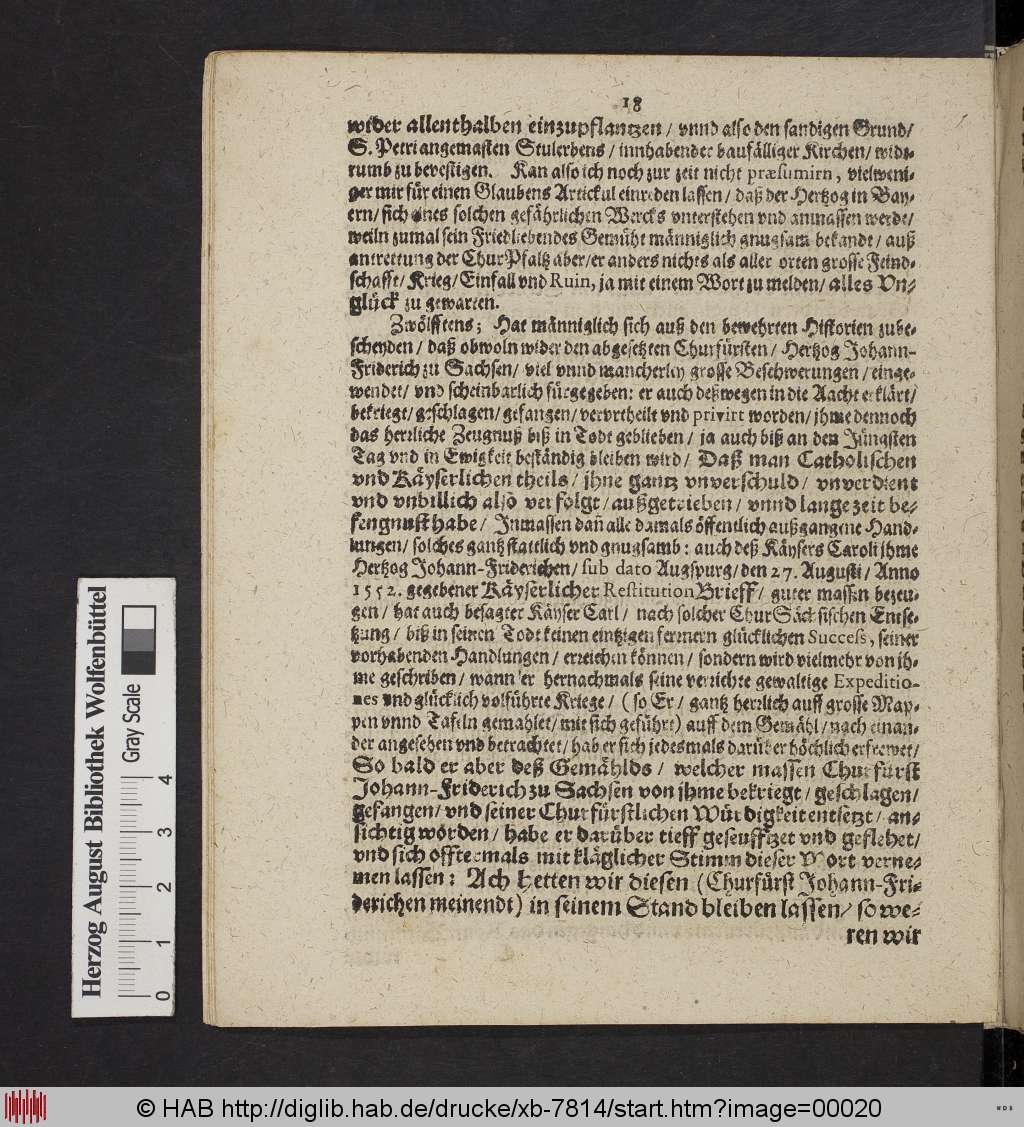 18
wider allenthalben einzupflantzen / vnnd also den sandigen Grund /
S. Petri angemasten Stulerbens / innhabender baufälliger Kirchen / wide-
rumb zu bevestigen. Kan also ich noch zur zeit nicht præsumirn, vielweni-
ger mir für einen Glaubens Artickul einreden lassen / daß der Hertzog in Bay-
ern / sich eines solchen gefährlichen Wercks vnterstehen vnd anmassen werde /
weiln zumal sein Friedliebendes Gemüht männiglich gnugsam bekandt / auß
antrettung der ChurPfaltz aber / er anders nichts als aller orten grosse Feind-
schafft / Krieg / Einfall vnd Ruin, ja mit einem Wort zu melden / alles Vn-
glück zu gewarten.
Zwölfftens; Hat männiglich sich auß den bewehrten Historien zube-
scheyden / daß obwoln wider den abgesetzten Churfürsten / Hertzog Johann-
Friderich zu Sachsen / viel vnnd mancherley grosse Beschwerungen / einge-
wendet / vnd scheinbarlich fürgegeben: er auch deßwegen in die Aacht erklärt /
bekriegt / geschlagen / gefangen / verurtheilt vnd privirt worden / jhme dennoch
das herrliche Zeugnuß biß in Todt geblieben / ja auch biß an den Jüngsten
Tag vnd in Ewigkeit beständig bleiben wird / Daß man Catholischen
vnd Käyserlichen theils / jhne gantz vnverschuld / vnverdient
vnd vnbillich also verfolgt / außgetrieben / vnnd lange zeit be-
fengnust habe / Inmassen dañ alle damals öffentlich außgangene Hand-
lungen / solches gantz stattlich vnd gnugsamb: auch deß Käysers Caroli jhme
Hertzog Johann-Friderichen / sub dato Augspurg / den 27. Augusti / Anno
1552. gegebener Käyserlicher Restitution Brieff / guter massen bezeu-
gen / hat auch besagter Käyser Carl / nach solcher Chur Sächsischen Entse-
tzung / biß in seinen Todt keinen eintzigen fernern glücklichen Success, seiner
vorhabenden Handlungen / erreichen können / sondern wird vielmehr von jh-
me geschriben / wann er hernachmals seine verrichte gewaltige Expeditio-
nes vnd glücklich volführte Kriege / (so Er / gantz herrlich auff grosse Map-
pen vnnd Tafeln gemahlet / mit sich geführt) auff dem Gemähl / nach einan-
der angesehen vnd betrachtet / hab er sich jedesmals darüber höchlich erfrewet /
So bald er aber deß Gemählds / welcher massen Churfürst
Johann-Friderich zu Sachsen von jhme bekriegt / geschlagen /
gefangen / vnd seiner Churfürstlichen Würdigkeit entsetzt / an-
sichtig worden / habe er darüber tieff geseufftzet vnd geflehet /
vnd sich offtermals mit kläglicher Stimm dieser Wort verne-
men lassen: Ach hetten wir diesen (Churfürst Johann-Fri-
derichen meinendt) in seinem Stand bleiben lassen / so we-
ren wir
Herzog August Bibliothek Wolfenbüttel
Gray Scale
0 1 2 3 4
© HAB http://diglib.hab.de/drucke/xb-7814/start.htm?image=00020